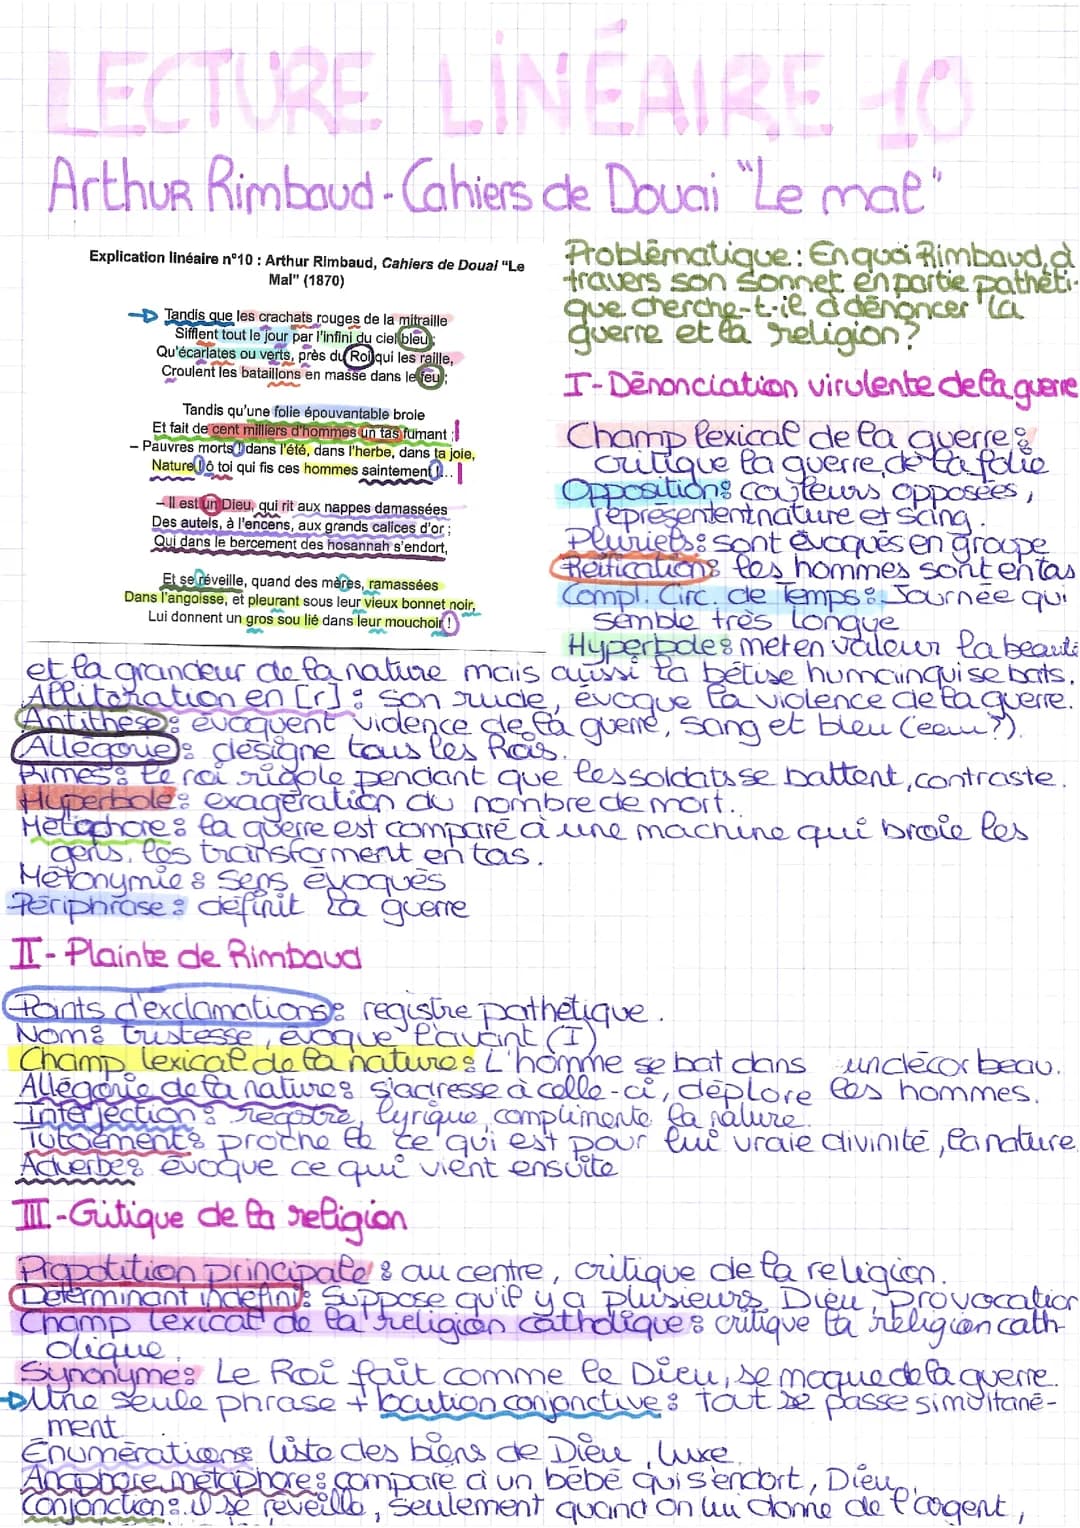 LECTURE LINÉAIRE 10
Arthur Rimbaud - Cahiers de Douai "Le mal"
Explication linéaire n°10 : Arthur Rimbaud, Cahiers de Douai "Le
Mal" (1870)
Tandis que les crachats rouges de la mitraille
Sifflent tout le jour par l'infini du ciel bleu ;
Qu'écarlates ou verts, près du Roi qui les raille,
Croulent les bataillons en masse dans le feu ;
Tandis qu'une folie épouvantable broie
Et fait de cent milliers d'hommes un tas fumant ;
– Pauvres morts ! dans l'été, dans l'herbe, dans ta joie,
Nature ! ô toi qui fis ces hommes saintement !...
– Il est un Dieu, qui rit aux nappes damassées
Des autels, à l'encens, aux grands calices d'or ;
Qui dans le bercement des hosannah s'endort,
Et se réveille, quand des mères, ramassées
Dans l'angoisse, et pleurant sous leur vieux bonnet noir,
Lui donnent un gros sou lié dans leur mouchoir !
Problématique : En quoi Rimbaud, à
travers son sonnet en partie pathéti-
que cherche-t-il à dénoncer la
guerre et la religion ?
I - Dénonciation virulente de la guerre
Champ lexical de la guerre :
critique la guerre, de la folie
Opposition : couleurs opposées,
représentent nature et sang.
Pluriels : sont évoqués en groupe
Réification : les hommes sont en tas
Compl. Circ. de Temps : Journée qui
semble très longue
Hyperbole : met en valeur la beauté
et la grandeur de la nature mais aussi la bêtise humain qui se bats.
Allitération en [r] : son rude, évoque la violence de la guerre.
Antithèse : évoquent violence de la guerre, sang et bleu (eau ?).
Allégorie : désigne tous les Rois.
Rimes : le roi rigole pendant que les soldats se battent, contraste.
Hyperbole : exagération du nombre de mort.
Métaphore : la guerre est comparé à une machine qui broie les
gens, les transforment en tas.
Métonymie : sens évoqués
Périphrase : définit la guerre
II - Plainte de Rimbaud
Points d'exclamations : registre pathétique.
Nom : tristesse, évoque l'avant (I)
Champ lexical de la nature : L'homme se bat dans un décor beau.
Allégorie de la nature : s'adresse à celle-ci, déplore les hommes.
Interjection : registre lyrique, complimente la nature.
Tutoiement : proche de ce qui est pour lui vraie divinité, la nature
Adverbe : évoque ce qui vient ensuite
III - Critique de la religion
Propotition principale : au centre, critique de la religion.
Déterminant indéfini : Suppose qu'il y a plusieurs Dieu, provocation
Champ lexical de la religion catholique : critique la religion cath-
olique.
Synonyme : Le Roi fait comme le Dieu, se moque de la guerre.
Une seule phrase + locution conjonctive : tout se passe simultané-
ment
Énumérations liste des biens de Dieu, luxe.
Anaphore, métaphore : comparé à un bébé qui s'endort, Dieu.
Conjonction : il se réveille, seulement quand on lui donne de l'argent,